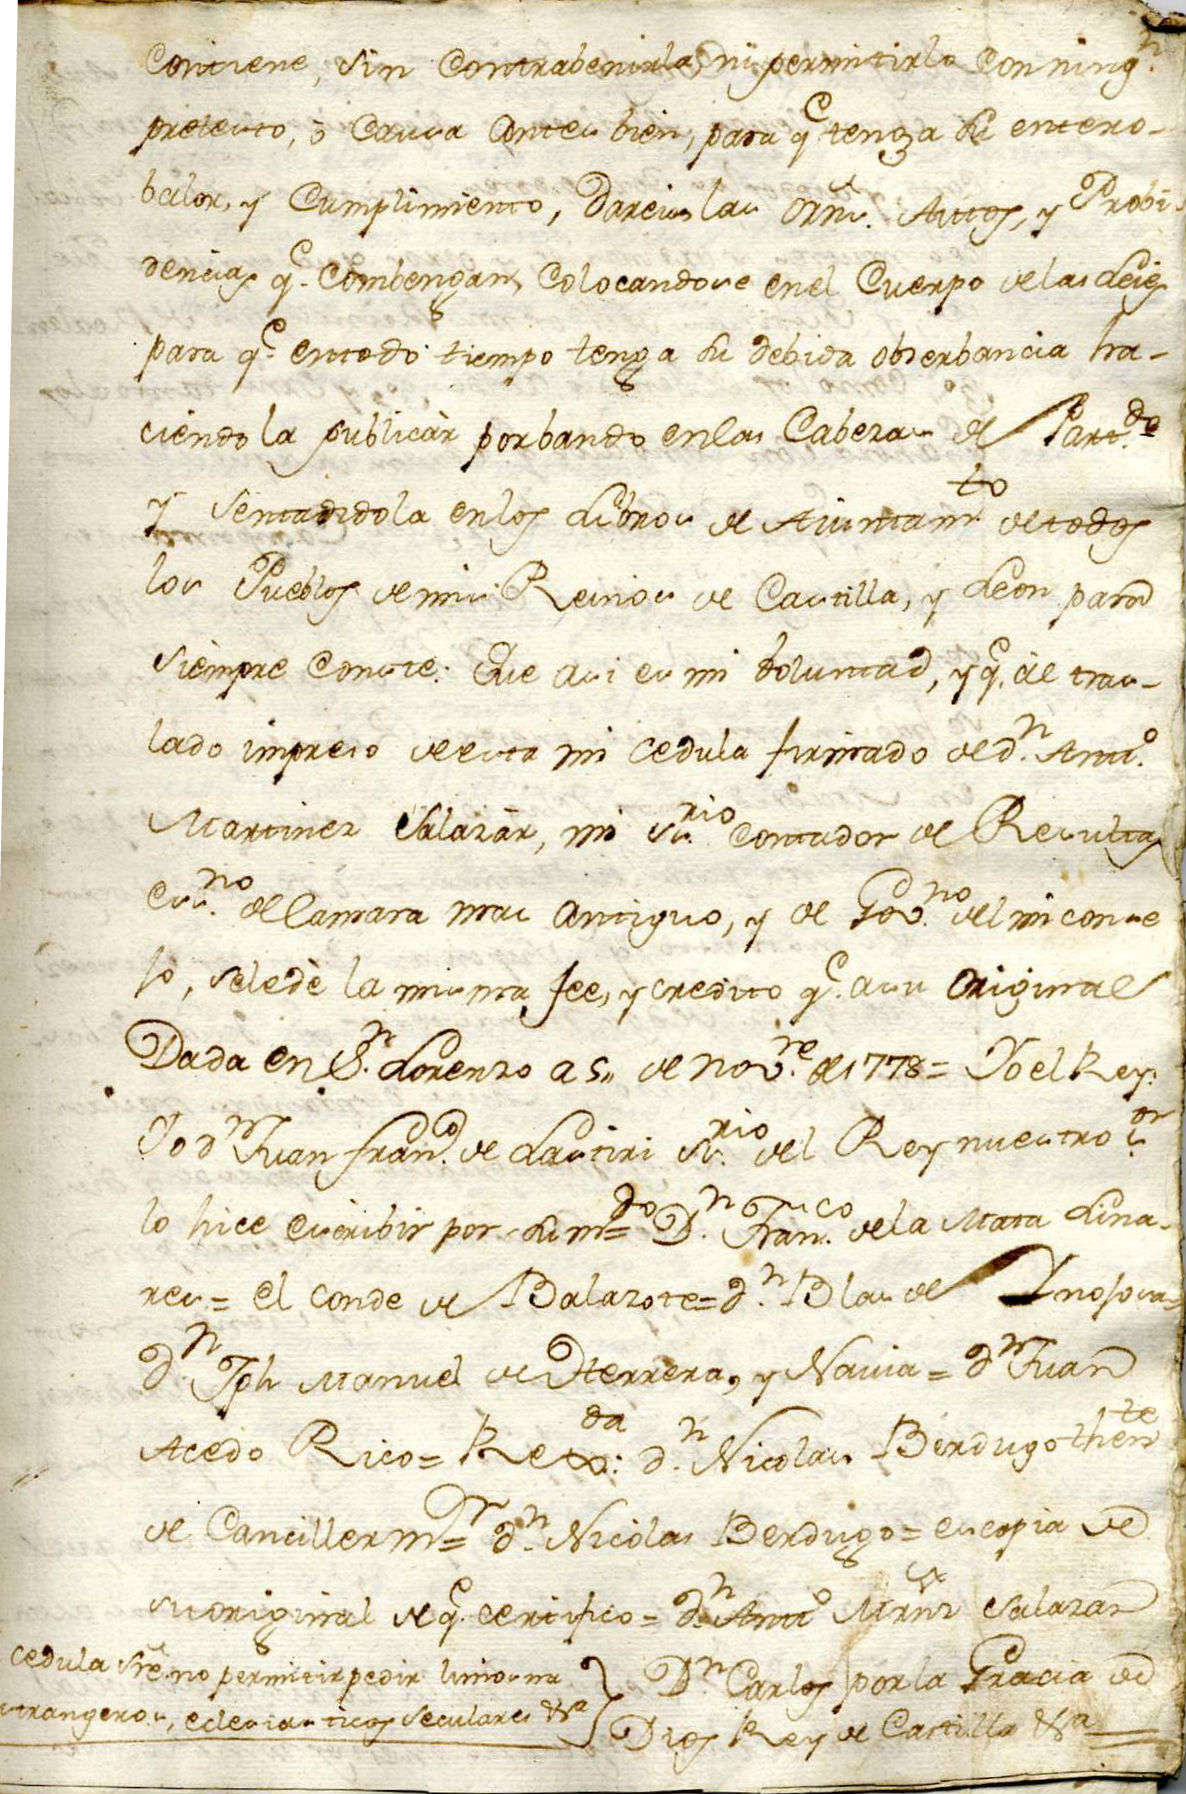 Contiene, sin Contrabenirla, ni permitirlo con ning.n
pretesto, ò Causa Antes bien, para q.e tenga su entero-
balor, y Cumplimiento, Dareis las orns. Autos, y Probi-
dencias q.e Combengan, Colocandose en el Cuerpo de las Leies
para q.e entodo tiempo tenga su debida obserbancia ha-
ciendola publicàr por bando en las Cabezas de Part.do
y sentadidola en los Libros de Aiuntam.to de todos
los Pueblos de mis Reinos de Castilla, y Leon para
siempre Conste: Que asi es mi boluntad, y q.e àl tras-
lado impreso de esta mi cedula firmado de d.n Ant.o
Martinez Salazàr, mi s.rio Contador de Resultas
es.no de Camara mas Antiguo, y de Gov.no del mi conse
jo, sele dè la misma fee, y credito q.e asu original
Dada en S.n Lorenzo a 5,, de Nov.re de 1778= Yo el Rey:
Yo d.n Juan fran.co de Lastiri s.rio del Rey nuestro s.or
lo hice escribir por su m.do= D.n Fran.co de la Mata Lina-
res= el Conde de Balazote= d.n Blas de Ynojosa=
d.n Jph Manuel de Herrera, y Navia= d.n Juan
Acedo Rico= Rex.da: d.n Nicolas Berdugo then.te
de Canciller m.r= d.n Nicolas Berdugo= es copia de
su original de q.e certifico= d.n Ant.o Mrnz Salazar
cedula sre. no permitir pedir limosna
strangeros, eclesiasticos seculares &a
D.n Carlos por la Gracia de
Dios Rey de Castilla &a